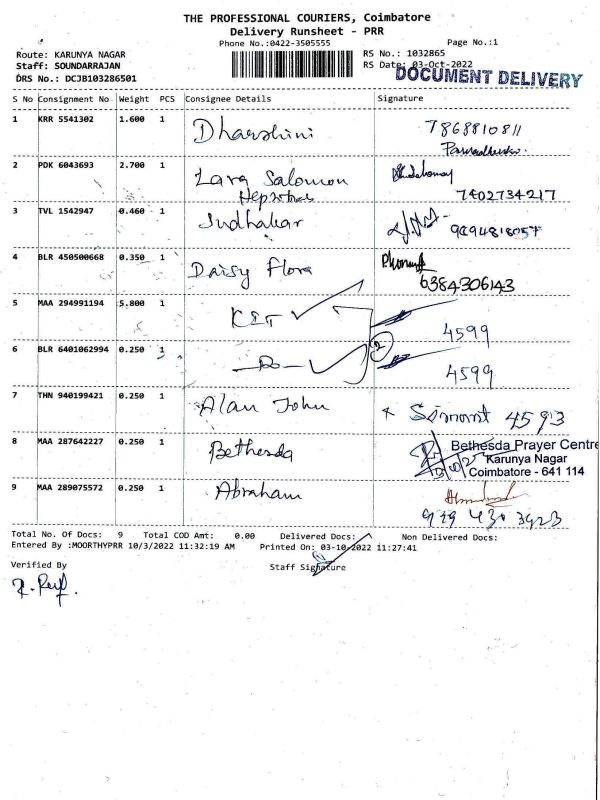 THE PROFESSIONAL COURIERS, Coimbatore
Delivery Runsheet - PRR
Phone No.:0422-3505555
Page No.:1
Route: KARUNYA NAGAR
RS No.: 1032865
Staff: SOUNDARRAJAN
RS Date: 03-Oct-2022
DRS No.: DCJB103286501
DOCUMENT DELIVERY
S No Consignment No Weight PCS Consignee Details Signature
1 KRR 5541302 1.600 1 Dharshini 7868810811
2 PDK 6043693 2.700 1 Zara Salomon
7402734217
3 TVL 1542947 0.460 1 Sudhakar 9894818057
4 BLR 450500668 0.350 1 Daisy Flora
6384306143
5 MAA 294991194 5.800 1 4599
2
6 BLR 6401062994 0.250 1 4599
7 THN 940199421 0.250 1 Alan John 4593
8 MAA 287642227 0.250 1 Bethesda Bethesda Prayer Centre
Karunya Nagar
Coimbatore - 641 114
9 MAA 289075572 0.250 1 Abraham
929 430 3923
Total No. Of Docs: 9 Total COD Amt: 0.00 Delivered Docs: Non Delivered Docs:
Entered By :MOORTHYPRR 10/3/2022 11:32:19 AM Printed On: 03-10-2022 11:27:41
Verified By Staff Signature